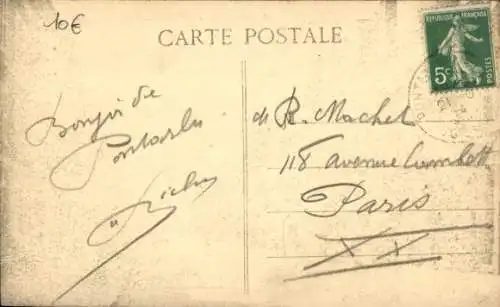 10€
CARTE POSTALE
RÉPUBLIQUE FRANÇAISE
5c
POSTES
Bonjour de
Pontarlier
M R. Machet
118 avenue Gambetta
Paris
XX